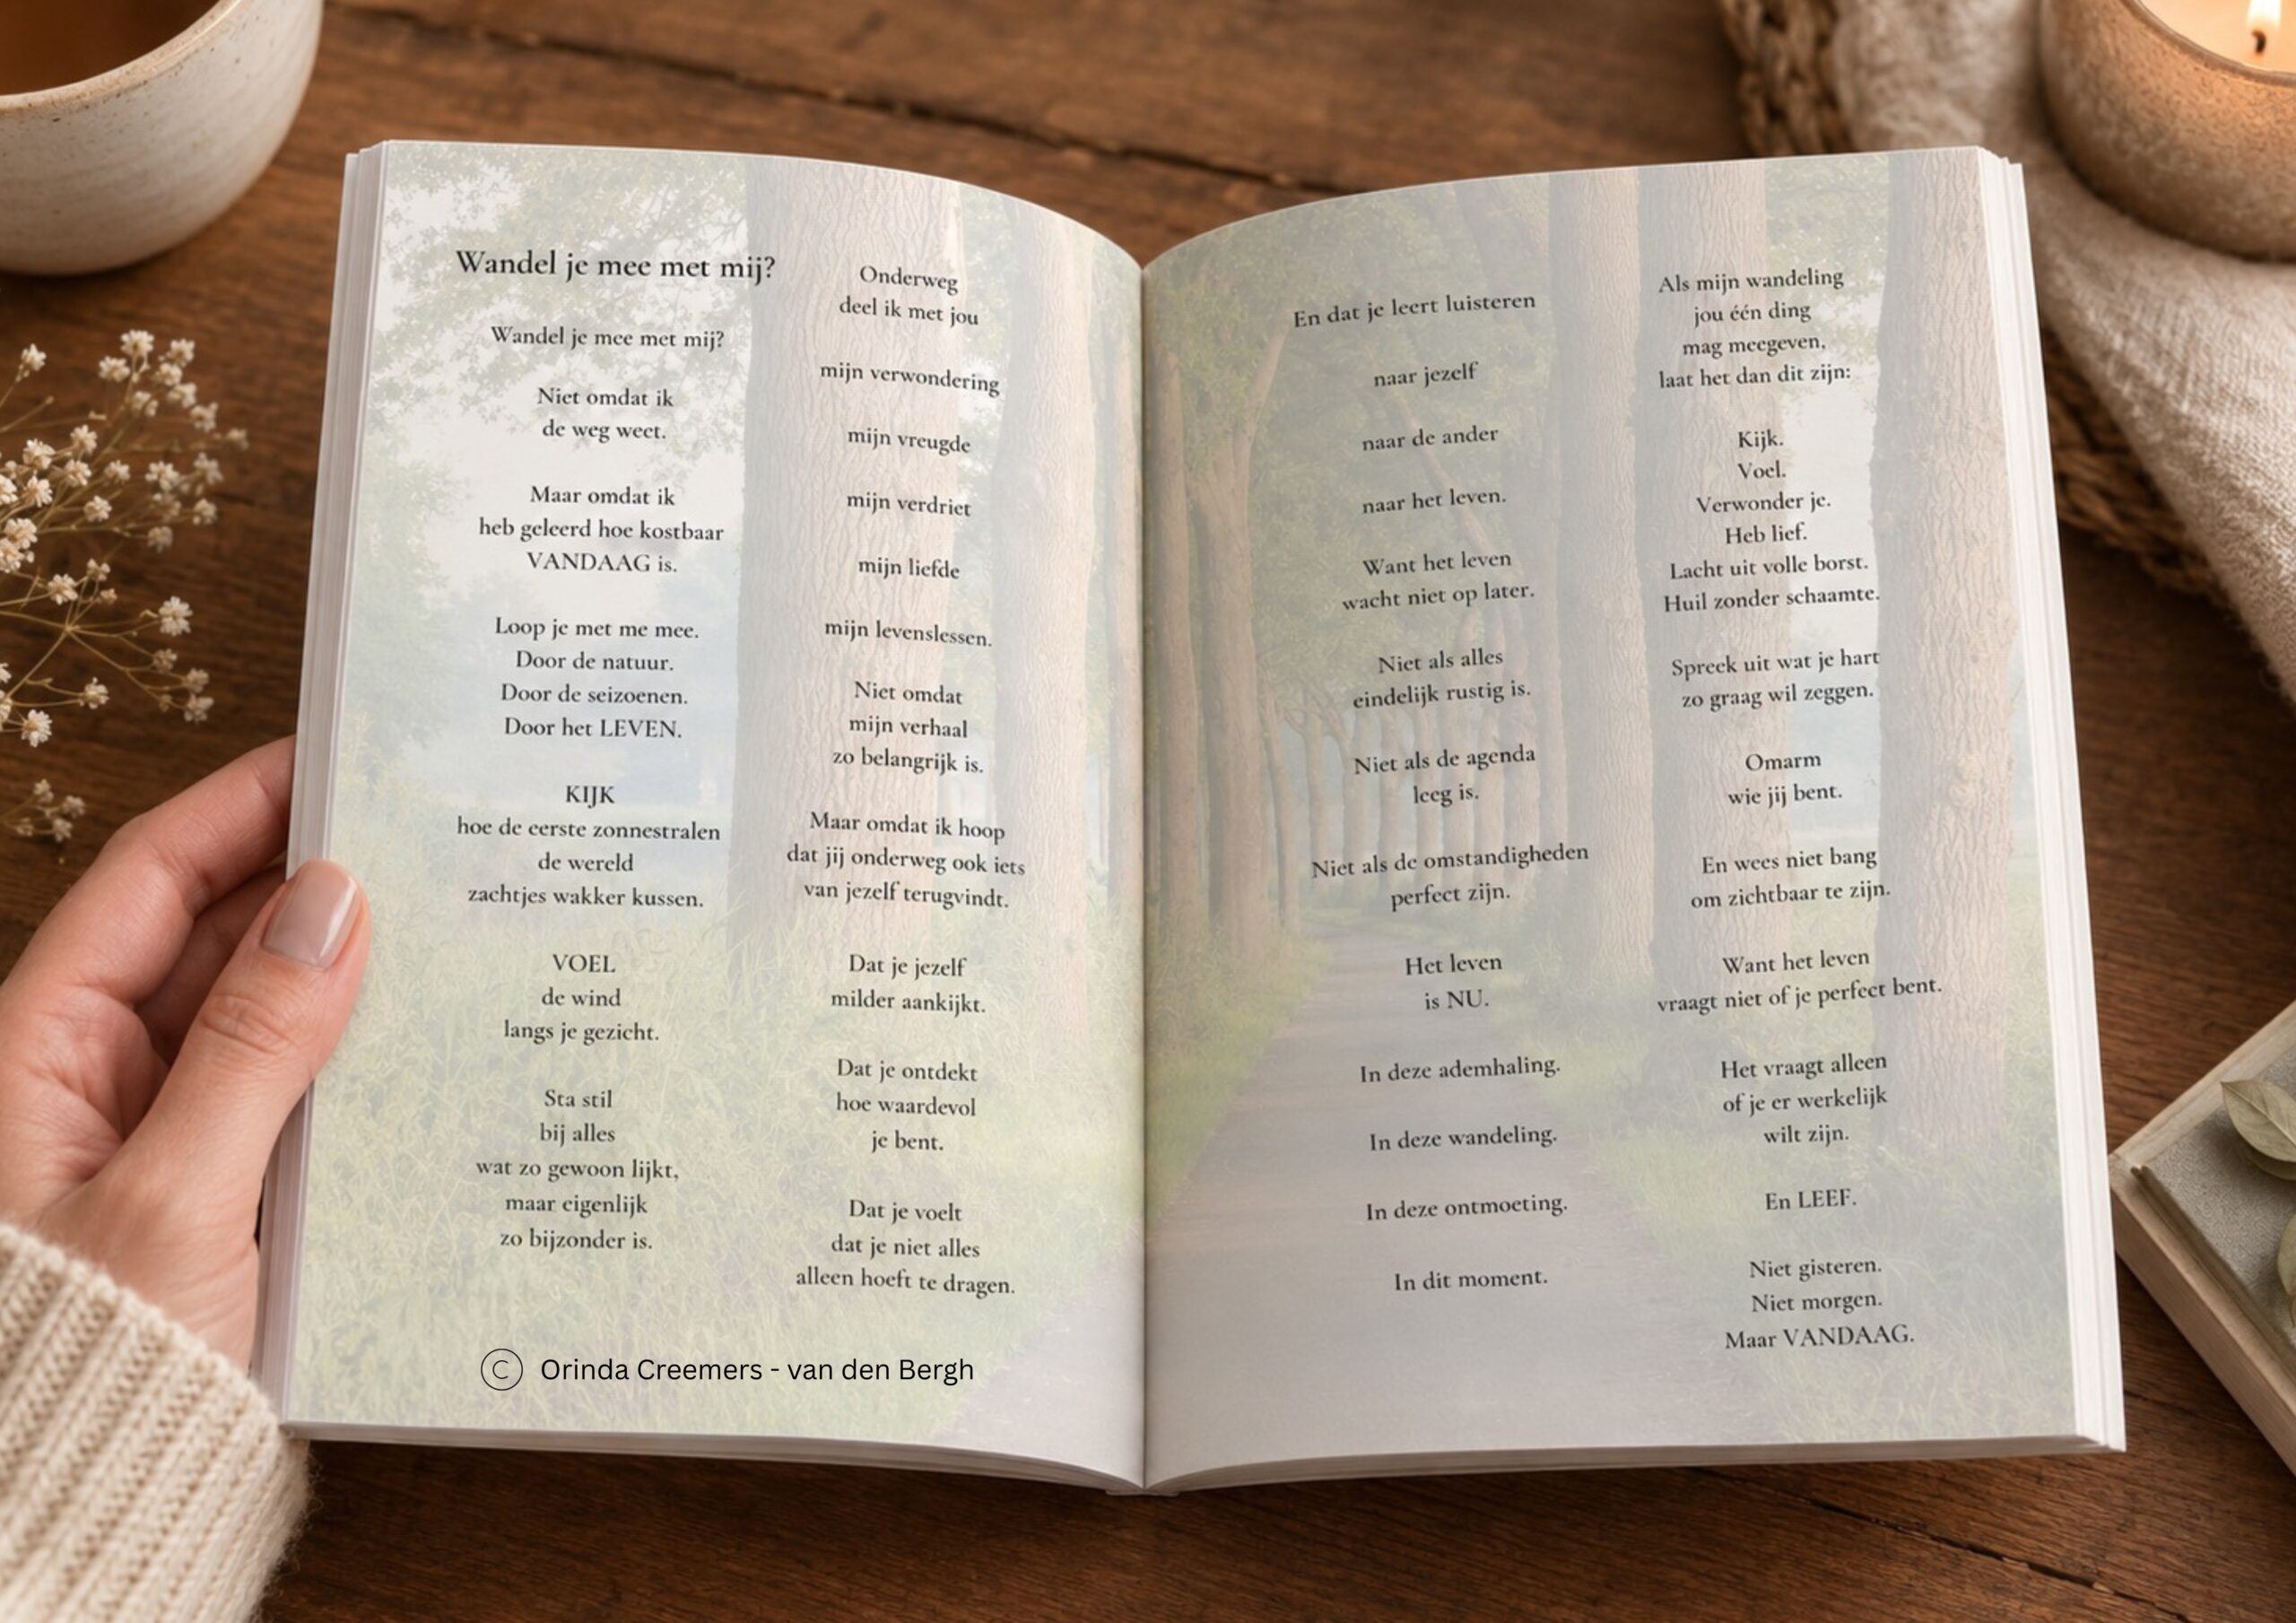 Wandel je mee met mij?
Wandel je mee met mij?
Niet omdat ik
de weg weet.
Maar omdat ik
heb geleerd hoe kostbaar
VANDAAG is.
Loop je met me mee.
Door de natuur.
Door de seizoenen.
Door het LEVEN.
KIJK
hoe de eerste zonnestralen
de wereld
zachtjes wakker kussen.
VOEL
de wind
langs je gezicht.
Sta stil
bij alles
wat zo gewoon lijkt,
maar eigenlijk
zo bijzonder is.
Onderweg
deel ik met jou
mijn verwondering
mijn vreugde
mijn verdriet
mijn liefde
mijn levenslessen.
Niet omdat
mijn verhaal
zo belangrijk is.
Maar omdat ik hoop
dat jij onderweg ook iets
van jezelf terugvindt.
Dat je jezelf
milder aankijkt.
Dat je ontdekt
hoe waardevol
je bent.
Dat je voelt
dat je niet alles
alleen hoeft te dragen.
© Orinda Creemers - van den Bergh
En dat je leert luisteren
naar jezelf
naar de ander
naar het leven.
Want het leven
wacht niet op later.
Niet als alles
eindelijk rustig is.
Niet als de agenda
leeg is.
Niet als de omstandigheden
perfect zijn.
Het leven
is NU.
In deze ademhaling.
In deze wandeling.
In deze ontmoeting.
In dit moment.
Als mijn wandeling
jou één ding
mag meegeven,
laat het dan dit zijn:
Kijk.
Voel.
Verwonder je.
Heb lief.
Lacht uit volle borst.
Huil zonder schaamte.
Spreek uit wat je hart
zo graag wil zeggen.
Omarm
wie jij bent.
En wees niet bang
om zichtbaar te zijn.
Want het leven
vraagt niet of je perfect bent.
Het vraagt alleen
of je er werkelijk
wilt zijn.
En LEEF.
Niet gisteren.
Niet morgen.
Maar VANDAAG.